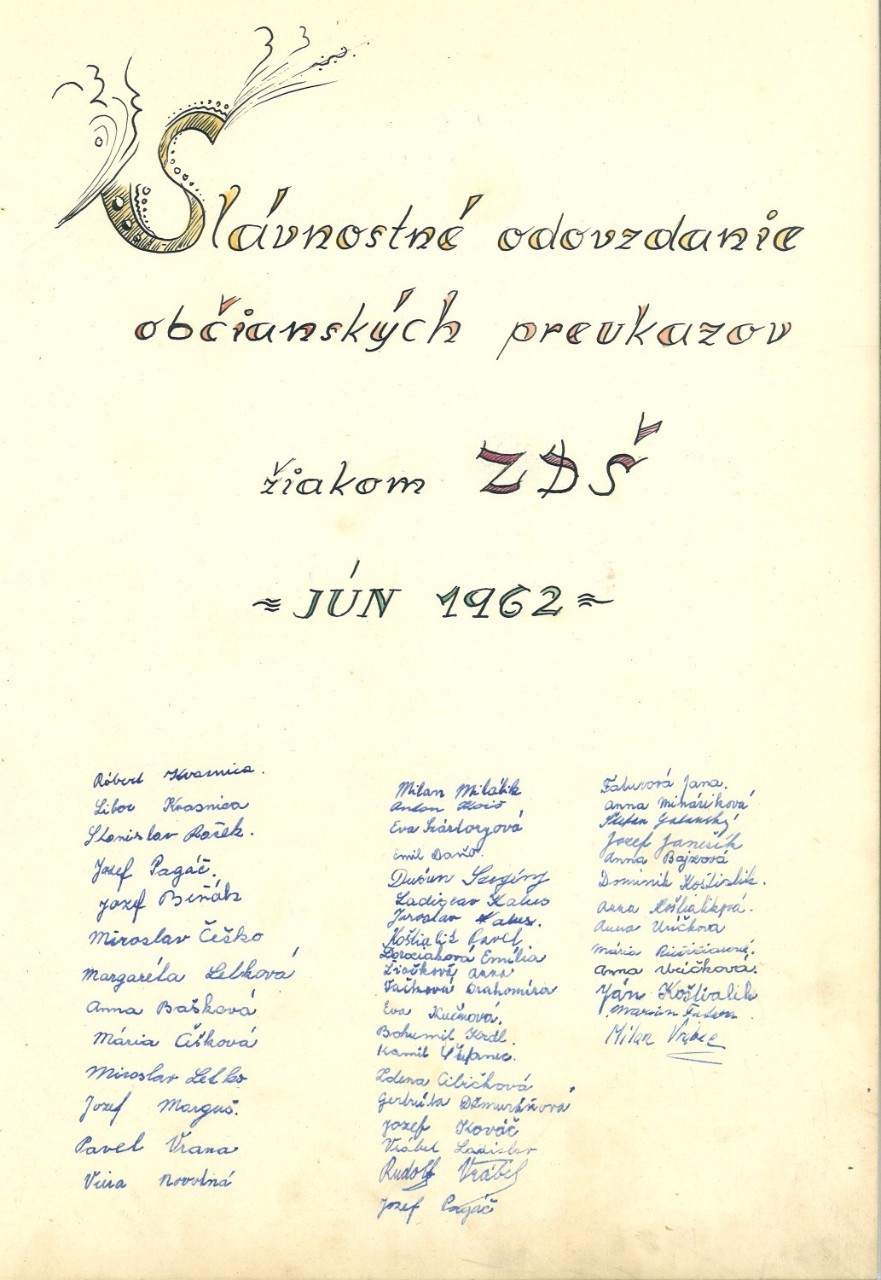 Slávnostné odovzdanie
občianských preukazov
žiakom ZDŠ
JÚN 1962
Róbert Kvasnica.
Libor Kvasnica
Stanislav
Jozef Pagáč.
Jozef Beňák
Miroslav Češko
Margaréta Lelková
Anna Bašková
Mária Čišková
Miroslav Lelko
Jozef Marguš.
Pavel Vrana
Viera Novotná
Milan Mihálik
Anton
Eva
Emil Daňo.
Dušan
Ladislav Kalus
Jaroslav Kalus.
Koštialik Pavel
Emília
Anna
Drahomíra
Eva Kučnová.
Bohumil Krdl.
Kamil Štefanec.
Zdena Cibičková
Gertrúda
Jozef Kováč
Vrábel Ladislav
Rudolf Vrábel
Jozef Pagáč
Faturová Jana.
Anna Miháriková
Štefan
Jozef Janešík
Anna Bajzová
Dominik Koštialik.
Anna Koštialiková.
Anna Vričková
Mária
Anna Vričková.
Ján Koštialik
Marián
Milan Vrábel